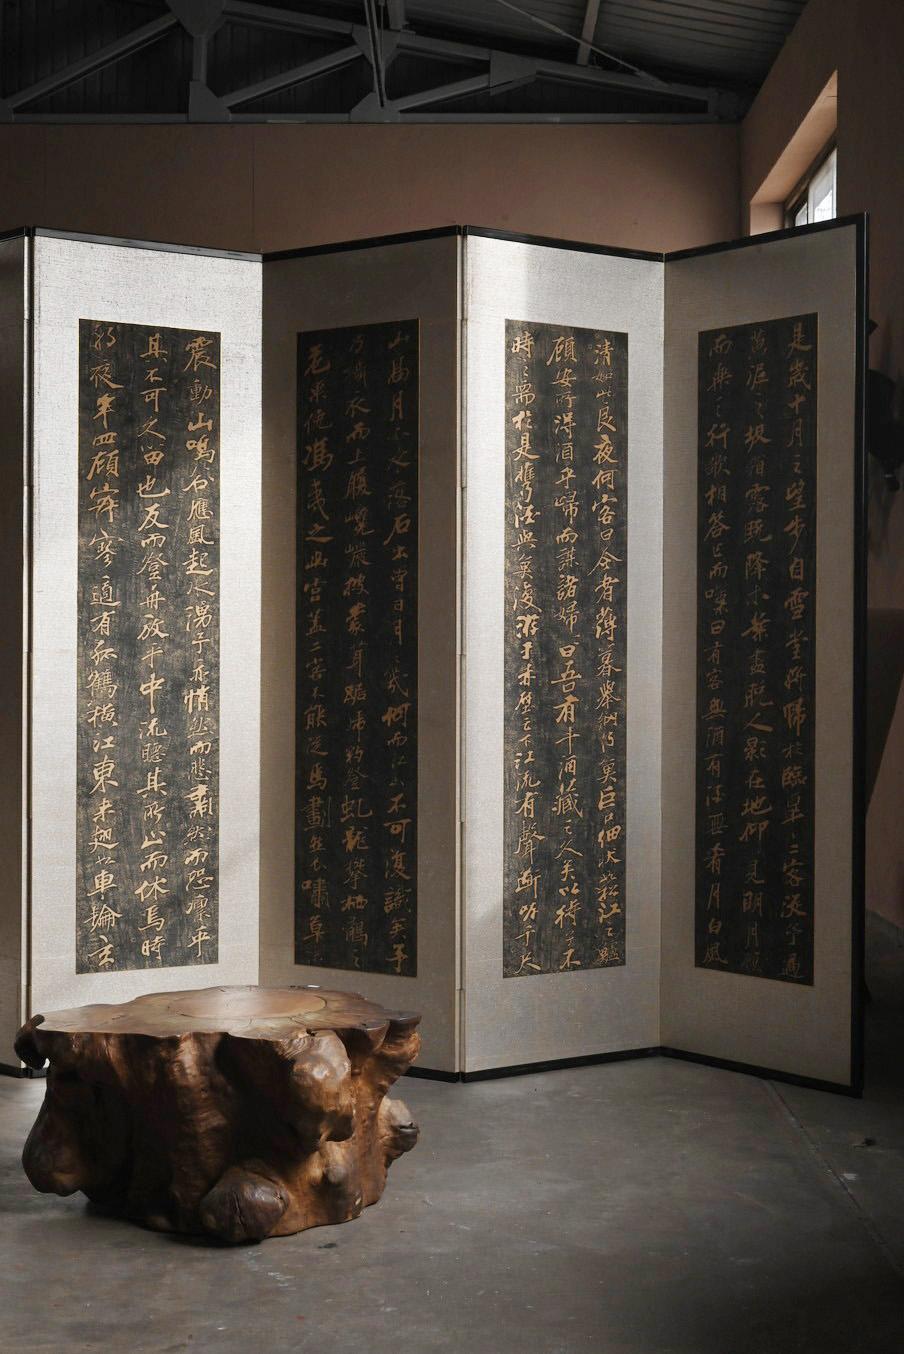 是歲十月之望步自雪堂將歸於臨皋二客從予過
黃泥之坂霜露既降木葉盡脫人影在地仰見明月顧
而樂之行歌相答已而嘆曰有客無酒有酒無肴月白風
清如此良夜何客曰今者薄暮舉網得魚巨口細狀松江之鱸
顧安所得酒乎歸而謀諸婦婦曰吾有斗酒藏之久矣以待子不
時之需於是攜酒與魚復游于赤壁之下江流有聲斷岸千尺
山高月小水落石出曾日月之幾何而江山不可復識矣予
乃攝衣而上履巉巖披蒙茸踞虎豹登虬龍攀栖鶻之
危巢俯馮夷之幽宮蓋二客不能從焉劃然長嘯草木
震動山鳴谷應風起水湧予亦悄然而悲肅然而恐凜乎
其不可久留也反而登舟放乎中流聽其所止而休焉時
夜半四顧寂寥適有孤鶴橫江東來翅如車輪玄